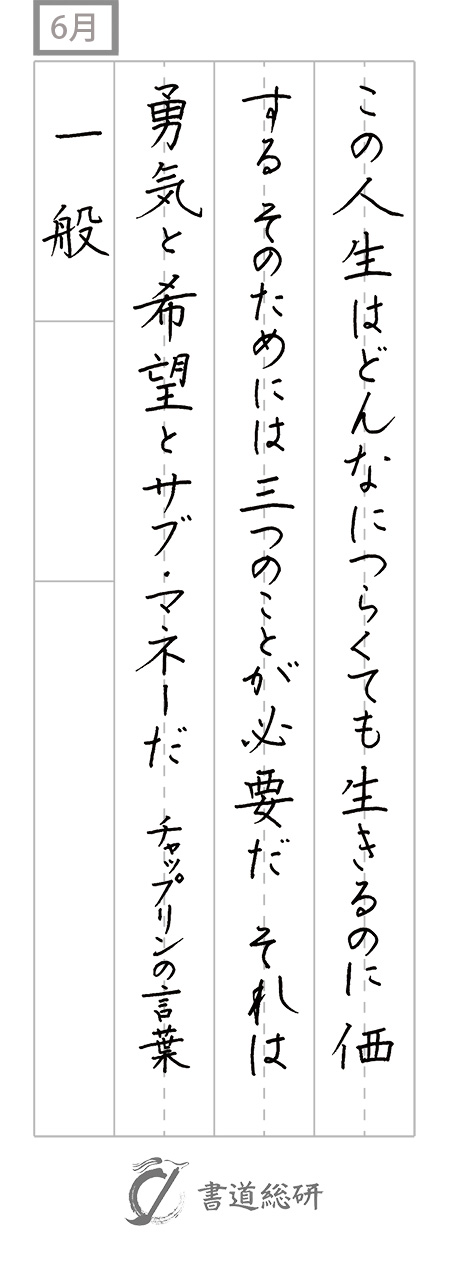 6月
この人生はどんなにつらくても生きるのに価
する そのためには三つのことが必要だ それは
勇気と希望とサブ・マネーだ チャップリンの言葉
一般
書道総研